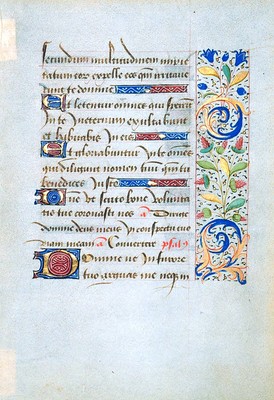 secundum multitudinem impie
tatum eor expelle eos qm irritaue
runt te domine
Et letentur omnes qui sperant
in te in eternum exultabunt
et habitabis in eis
Et gloriabuntur in te omnes
qui diligunt nomen tuum qm tu
benedices iusto
Dne ut scuto bone volunta
tis tue coronasti nos a Dirige
domine deus meus in conspectu tuo
viam meam a Convertere psal
Domine ne in furore
tuo arguas me neq in